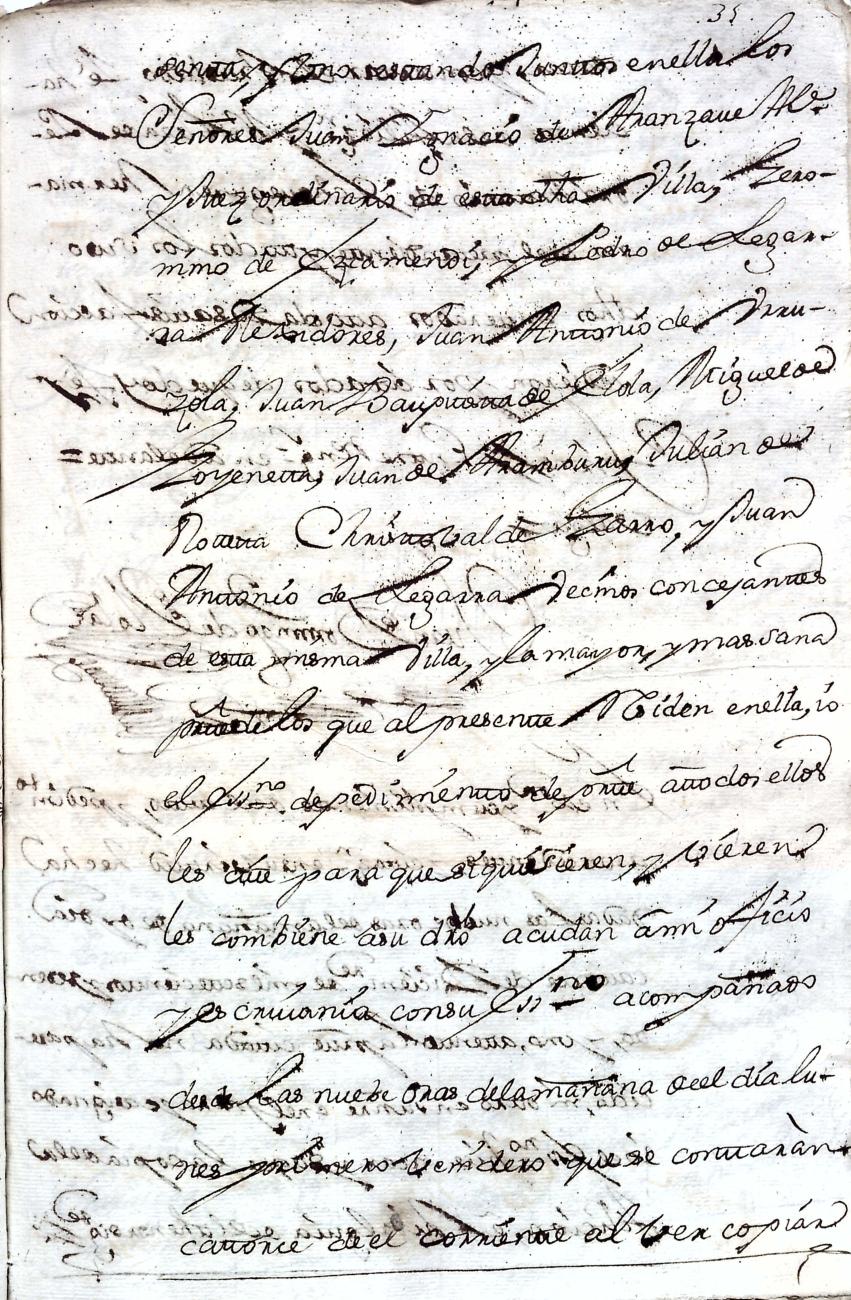 35
juntos en ella los
Señores Juan Ygnacio de Aranzaue Alc.e
y Juez ordinario de esta dha Villa, Gero-
nimo de Lizamendi, y Pedro de Legar-
ra Rexidores, Juan Antonio de Urru-
zola, Juan Baupttista de Elola, Miguel de
Goyenetta, Juan de Aramburu, Julian de
Notta Christoval de Yzarro, y Juan
Anttonio de Legarra vecinos concejantes
de esta misma Villa, y la mayor, y mas sana
partte de los que al presentte Residen en ella, io
el Ss.no de pedimentto de partte a ttodos ellos
les cite para que si quisieren, y vieren
les combiene a su dro acudan a mi oficio
y escriuania con su Ss.no acompañado
desde las nuebe oras de la mañana de el dia lu-
nes primero benidero que se conttaràn
cattorce de el corrientte al ver copiar